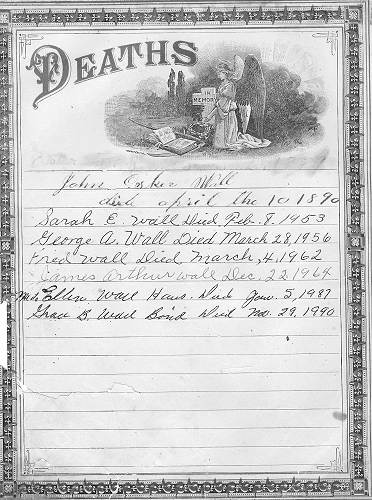 DEATHS
IN
MEMORY
John Wall
died april the 10 1890
Sarah E. Wall Died Feb. 8. 1953
George A. Wall Died March 28, 1956
Fred Wall Died March, 4, 1962
James Arthur Wall Dec. 22 1964
Ellen Wall Haus. Died Jan. 5, 1987
Grace B. Wall Bond Died Nov. 29, 1990